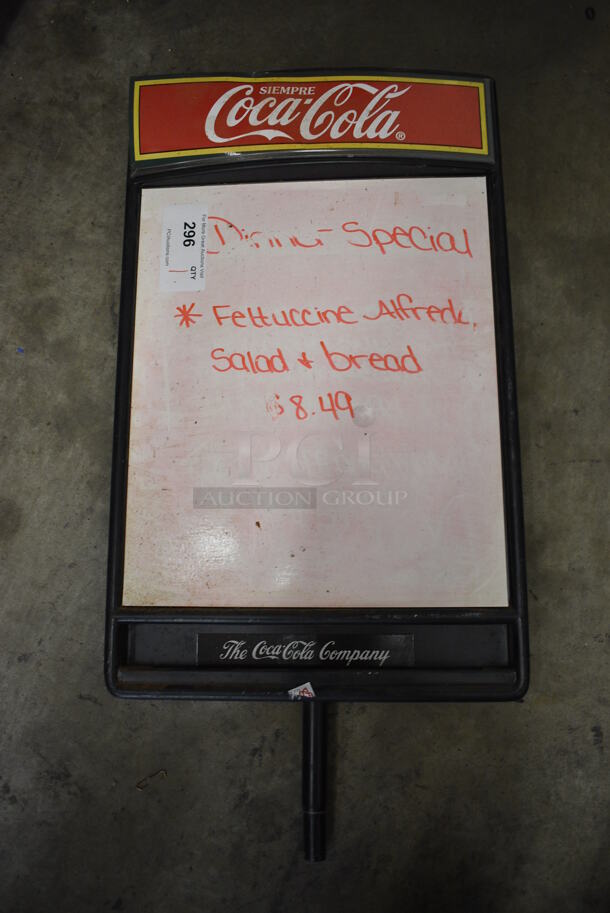 SIEMPRE
Coca-Cola®
For More Great Auctions Visit
PCIAuctions.com
296
1 QTY
Dinner Special
* Fettuccine Alfredo,
Salad + bread
$8.49
PCI
AUCTION GROUP
The Coca-Cola Company